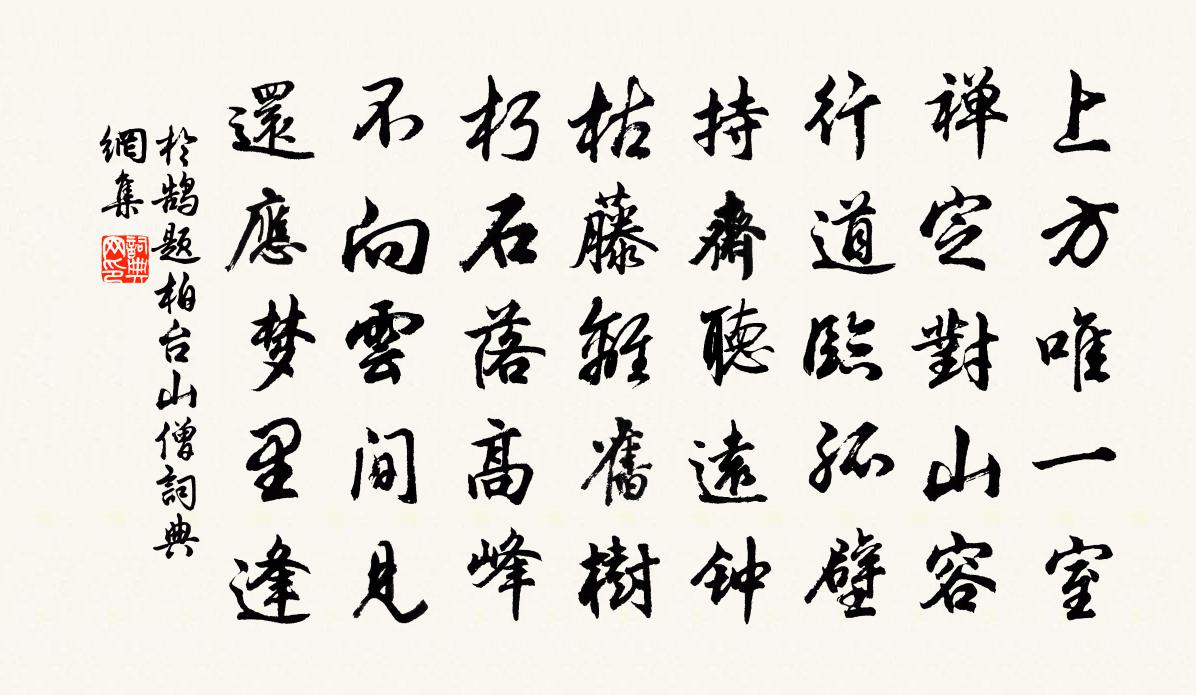 上方唯一室
禅定對山容
行道臨孤壁
持齋聽遠钟
枯藤離舊樹
朽石落高峰
不向雲間見
還應梦里逢
於鹄题柏台山僧詞典
網集
詞典
网印